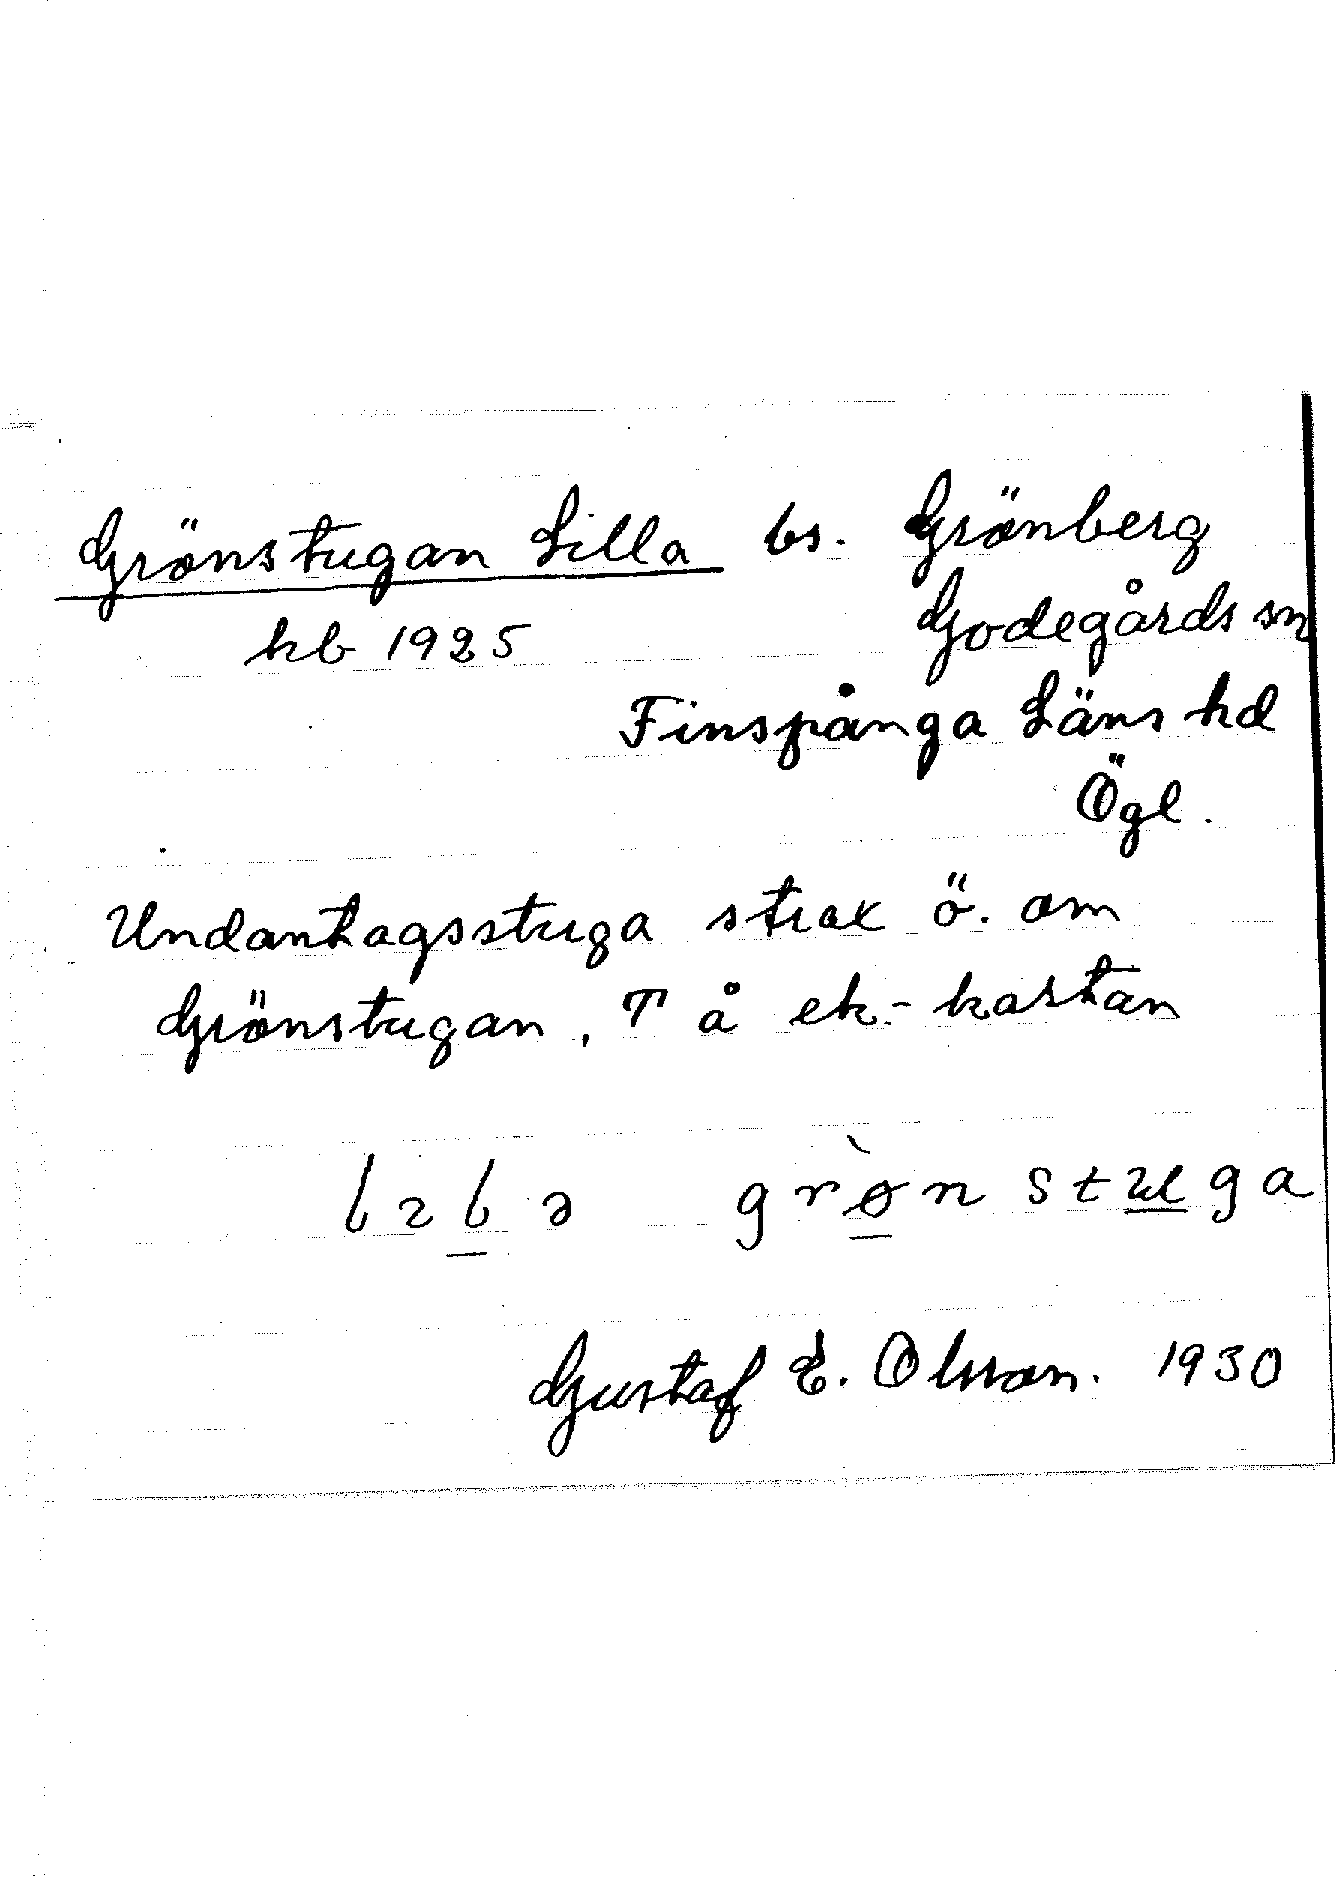 Grönstugan Lilla bs. Grönberg
kb 1925 Godegårds sn
Finspånga Läns hd
Ögl.
Undantagsstuga strax ö. om
Grönstugan, T å ek.-kartan
grø̀nstuga
Gustaf E. Olsson. 1930